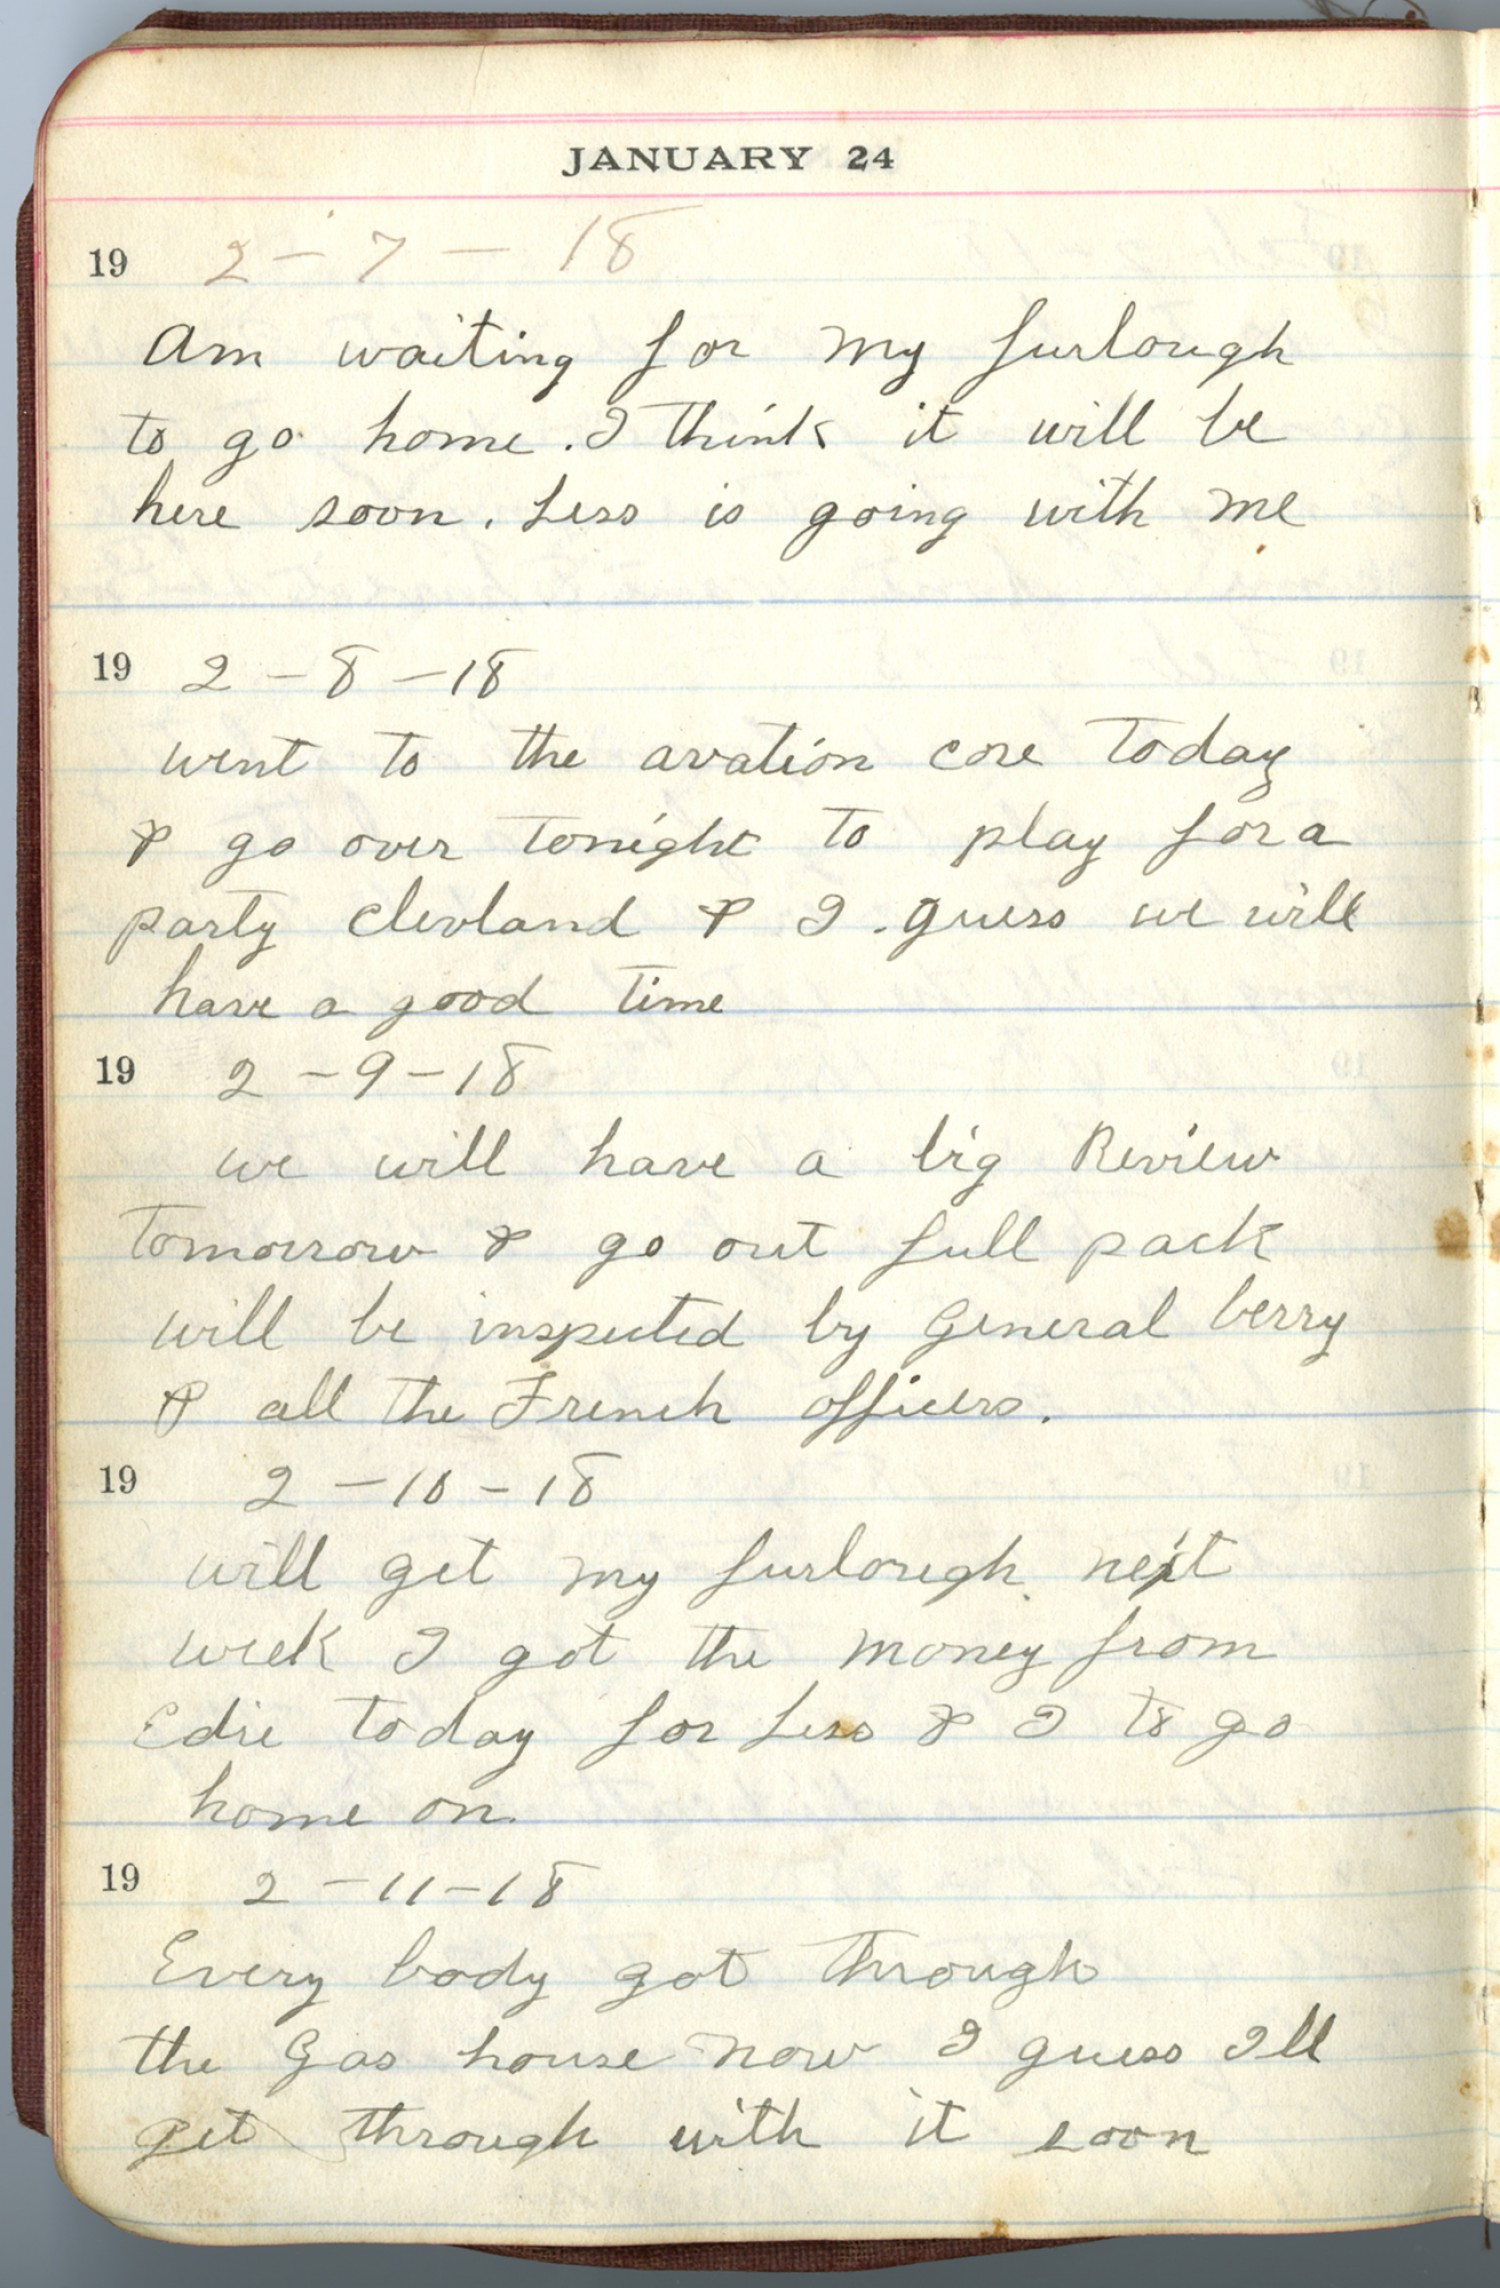 JANUARY 24
19 2-7-18
Am waiting for my furlough
to go home. I think it will be
here soon. Less is going with me
19 2-8-18
went to the avation core today
& go over tonight to play for a
party Clevland & I. guess we will
have a good time
19 2-9-18
we will have a big Review
Tomorrow & go out full pack
will be inspected by General berry
& all the French officers.
19 2-10-18
will get my furlough next
week I got the money from
Edie today for Less & I to go
home on.
19 2-11-18
Every body got through
the Gas house now I guess Ill
get through with it soon